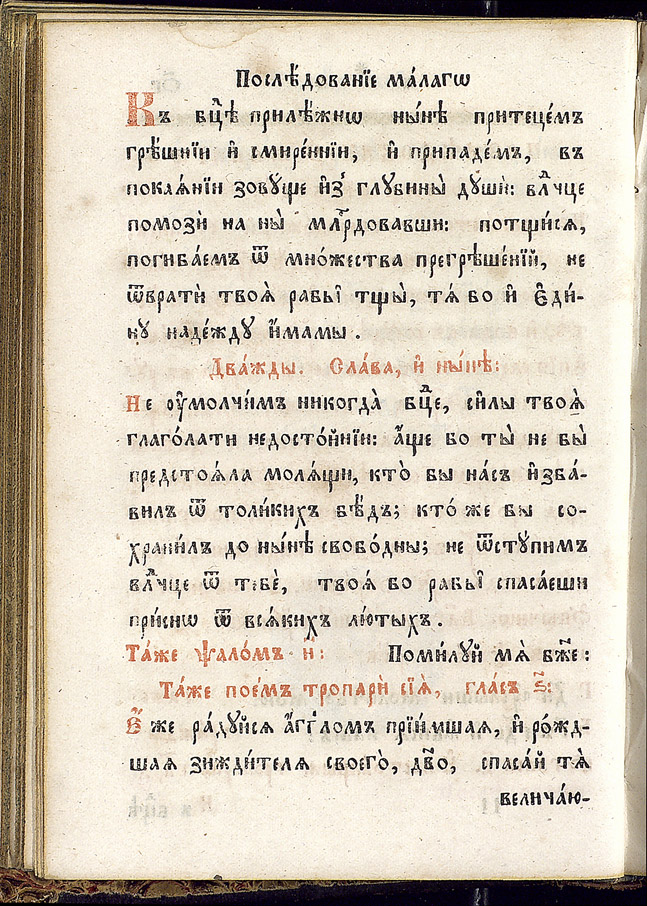 Послѣ́дованїе ма́лагѡ
Къ бц҃ѣ прилѣ́жнѡ ны́нѣ притеце́мъ
грѣ́шнїи и҆ смире́ннїи, и҆ припаде́мъ, въ
покаѧ́нїи зовꙋ́ще и҆з̾ глꙋбины̀ дꙋшѝ: влⷣчце
помозѝ на ны̀ млⷭ҇рдовавши: потщи́сѧ,
погиба́емъ ѿ мно́жества прегрѣше́нїй, не
ѿвратѝ твоѧ̀ рабы̑ тщы̀, тѧ́ бо и҆ є҆ди́-
нꙋ наде́ждꙋ и҆́мамы.
Два́жды. Сла́ва, и҆ ны́нѣ:
Не ᲂу҆молчи́мъ никогда̀ бц҃е, си̑лы твоѧ̀
глаго́лати недосто́йнїи: а҆́ще бо ты̀ не бы̀
предстоѧ́ла молѧ́щи, кто̀ бы на́съ и҆зба́-
вилъ ѿ толи́кихъ бѣ́дъ; кто́ же бы со-
храни́лъ до ны́нѣ свобо́дны; не ѿстꙋ́пимъ
влⷣчце ѿ тебѐ, твоѧ̀ бо рабы̑ спаса́еши
при́снѡ ѿ всѧ́кихъ лю́тыхъ.
Та́же ѱало́мъ н҃: Поми́лꙋй мѧ̀ бж҃е:
Та́же пое́мъ тропарѝ сїѧ̑, гла́съ ѕ҃:
Е҆́же ра́дꙋйсѧ а҆́гг҃ломъ прїи́мшаѧ, и҆ ро́жд-
шаѧ зижди́телѧ своего̀, дв҃о, спаса́й тѧ̀
велича́ю-